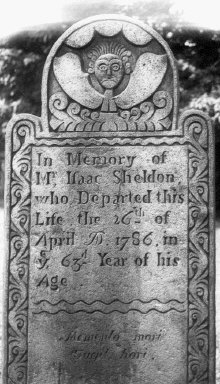 In Memory of
Mr. Isaac Sheldon
who Departed this
Life the 26th of
April D. 1786, in
ye 63d Year of his
Age
Memento mori